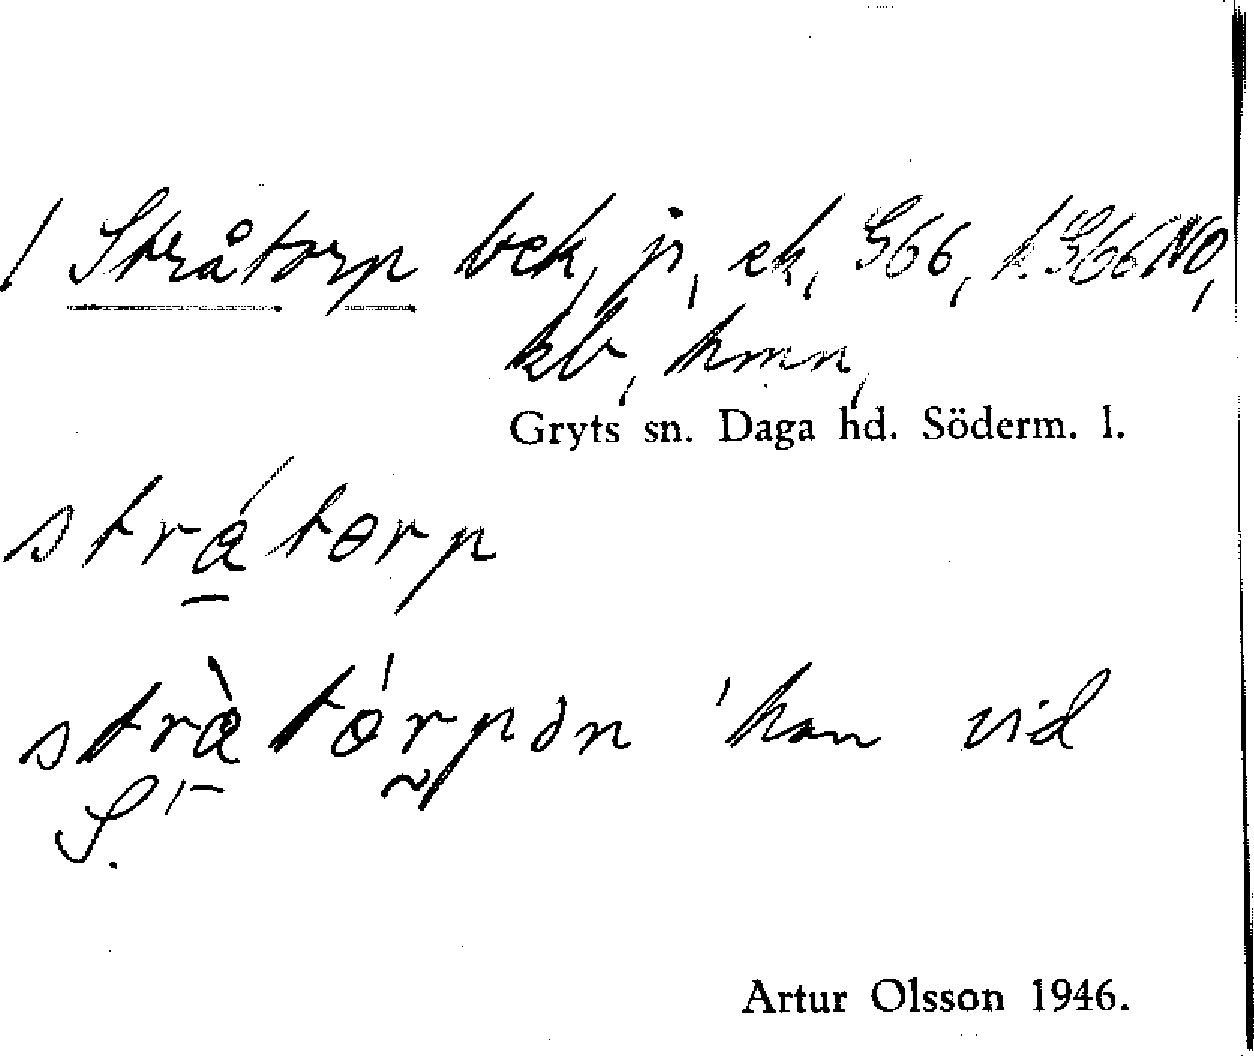 / Stråtorp bek, jr, ek, G66, k.G66NO,
kb, hmn,
Gryts sn. Daga hd. Söderm. l.
stråtorp
stràtórpən 'han vid
S.'
Artur Olsson 1946.